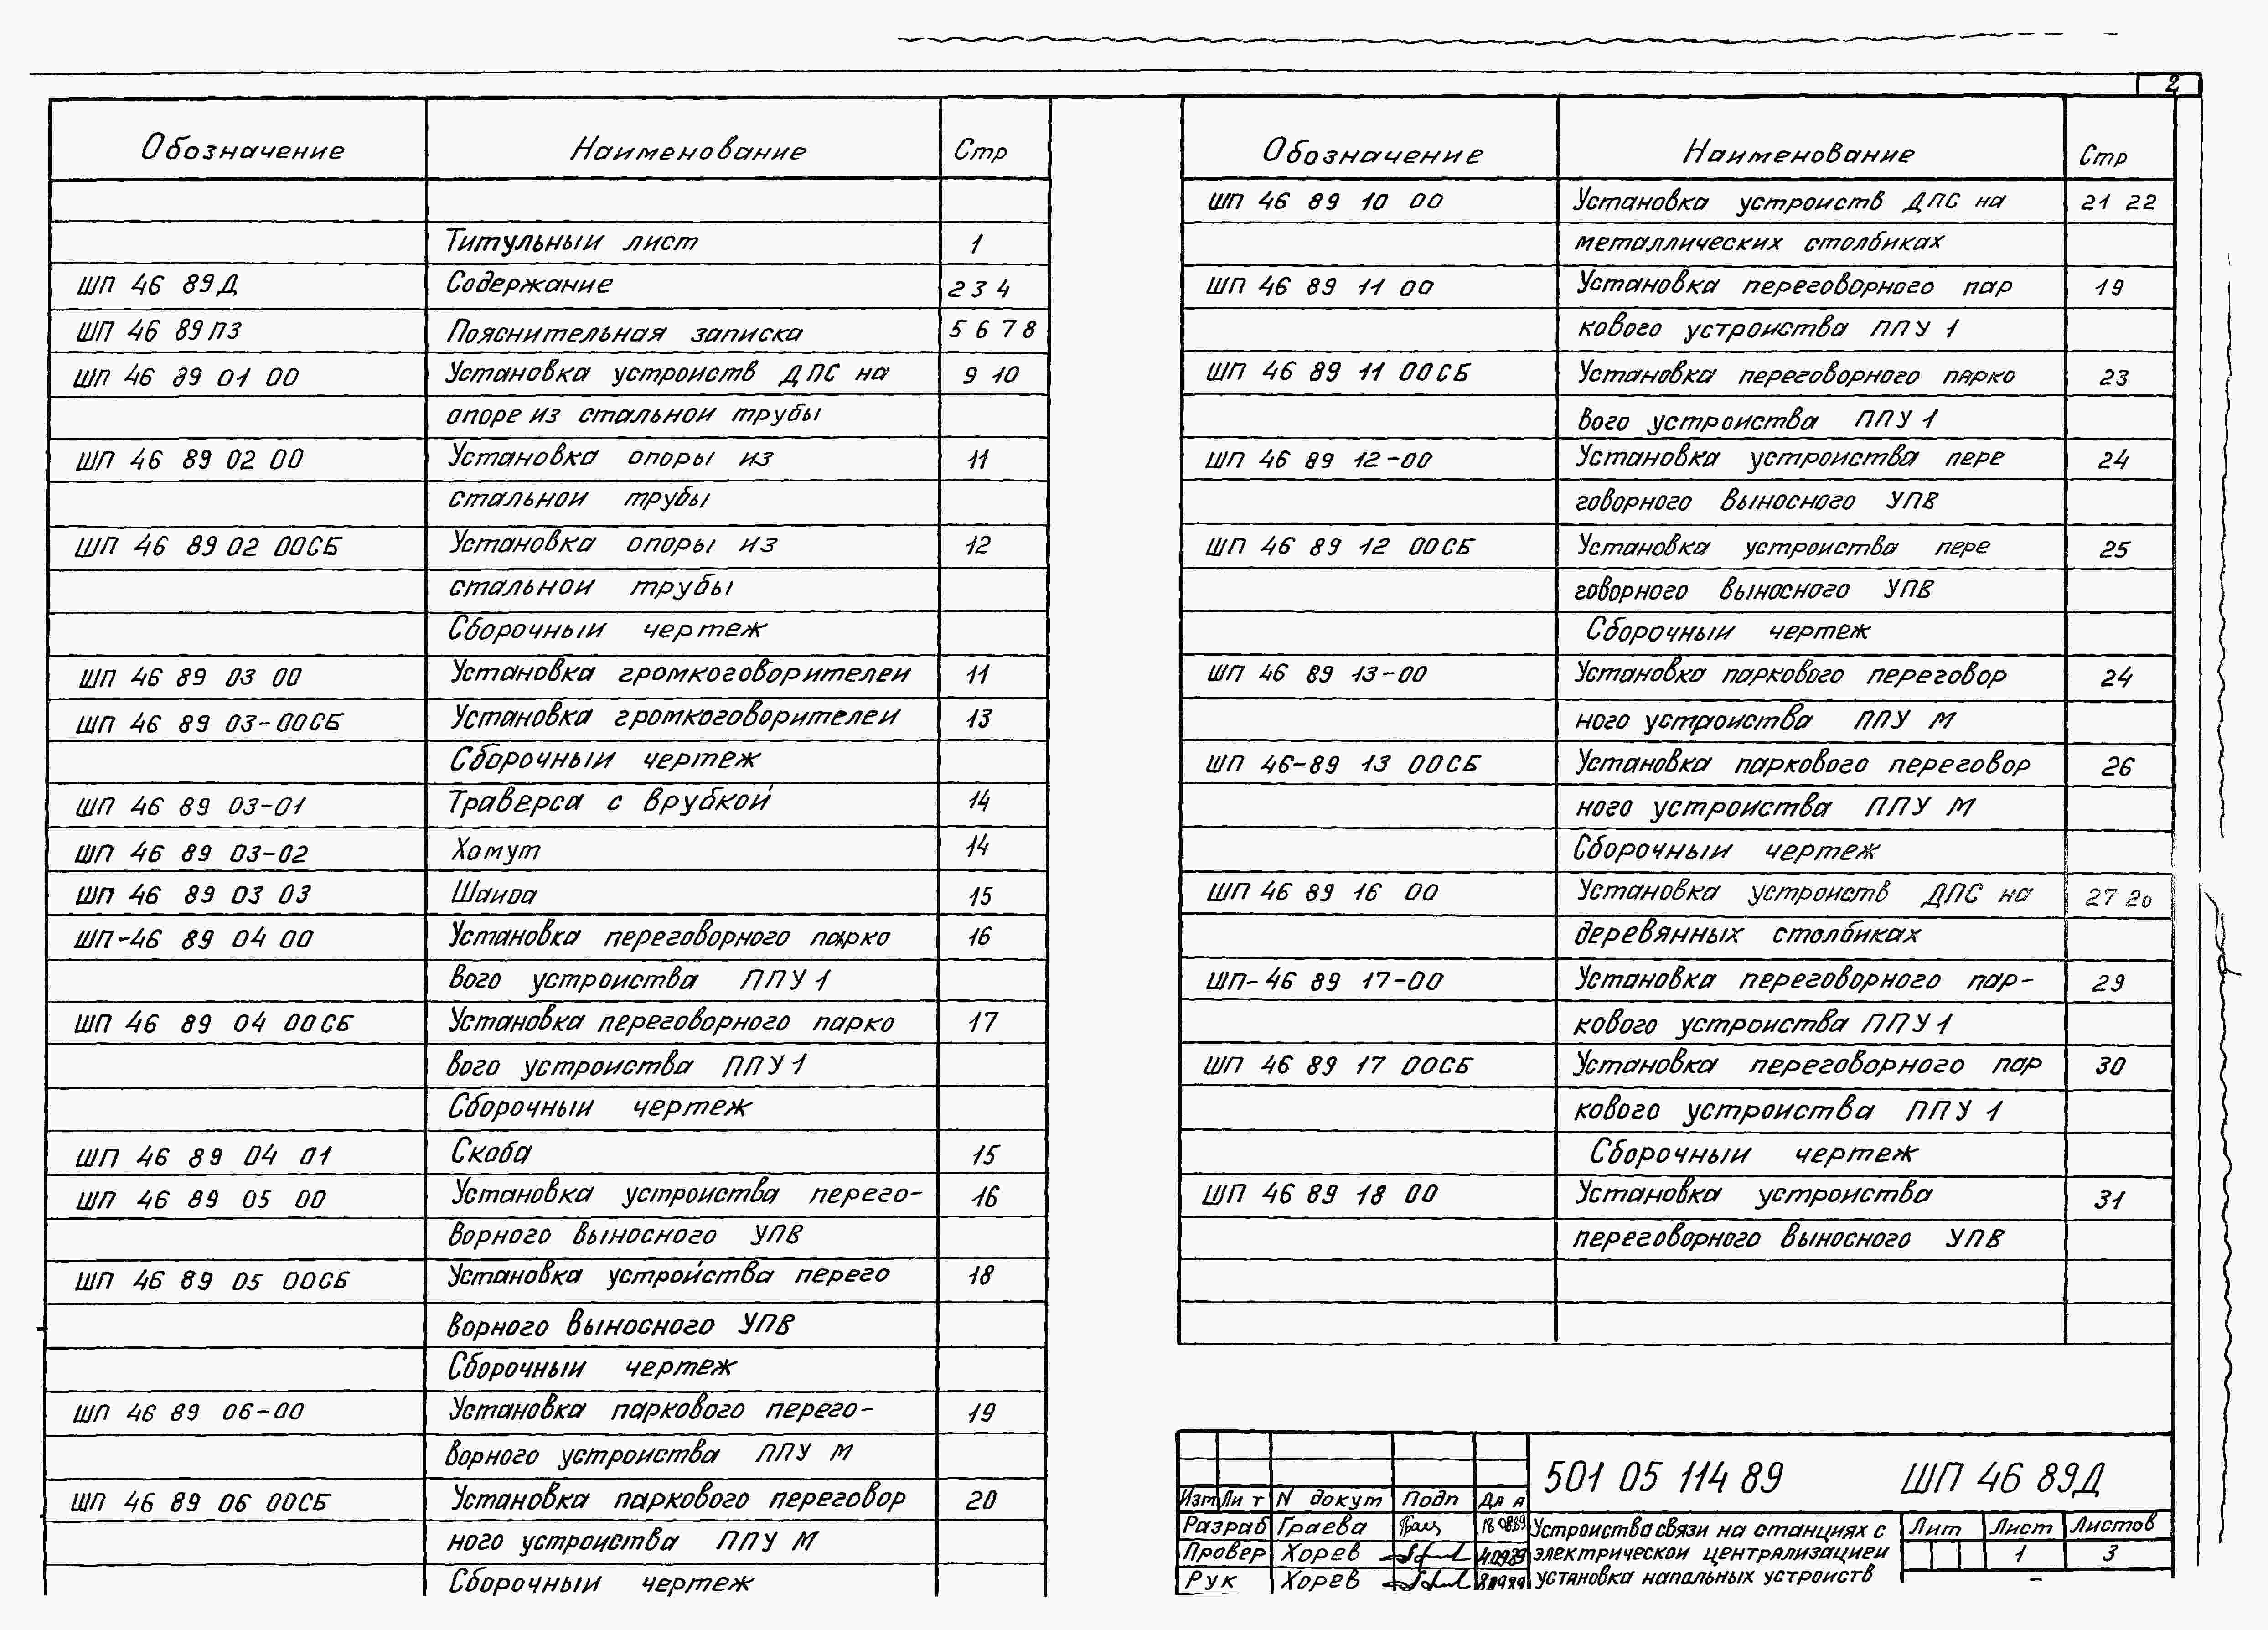 2
Обозначение Наименование Стр
Титульныи лист 1
ШП 46 89Д Содержание 2 3 4
ШП 46 89ПЗ Пояснительная записка 5 6 7 8
ШП 46 89 01 00 Установка устроиств ДПС на 9 10
опоре из стальнои трубы
ШП 46 89 02 00 Установка опоры из 11
стальнои трубы
ШП 46 89 02 00СБ Установка опоры из 12
стальнои трубы
Сборочныи чертеж
ШП 46 89 03 00 Установка громкоговорителеи 11
ШП 46 89 03-00СБ Установка громкоговорителеи 13
Сборочныи чертеж
ШП 46 89 03-01 Траверса с врубкой 14
ШП 46 89 03-02 Хомут 14
ШП 46 89 03 03 Шаиба 15
ШП-46 89 04 00 Установка переговорного парко 16
вого устроиства ППУ 1
ШП 46 89 04 00СБ Установка переговорного парко 17
вого устроиства ППУ 1
Сборочныи чертеж
ШП 46 89 04 01 Скоба 15
ШП 46 89 05 00 Установка устроиства перего- 16
ворного выносного УПВ
ШП 46 89 05 00СБ Установка устройства перего 18
ворного выносного УПВ
Сборочныи чертеж
ШП 46 89 06-00 Установка паркового перего- 19
ворного устроиства ППУ М
ШП 46 89 06 00СБ Установка паркового переговор 20
ного устроиства ППУ М
Сборочныи чертеж
Обозначение Наименование Стр
ШП 46 89 10 00 Установка устроиств ДПС на 21 22
металлических столбиках
ШП 46 89 11 00 Установка переговорного пар 19
кового устроиства ППУ 1
ШП 46 89 11 00СБ Установка переговорного парко 23
вого устроиства ППУ 1
ШП 46 89 12-00 Установка устроиства пере 24
говорного выносного УПВ
ШП 46 89 12 00СБ Установка устроиства пере 25
говорного выносного УПВ
Сборочныи чертеж
ШП 46 89 13-00 Установка паркового переговор 24
ного устроиства ППУ М
ШП 46-89 13 00СБ Установка паркового переговор 26
ного устроиства ППУ М
Сборочныи чертеж
ШП 46 89 16 00 Установка устроиств ДПС на 27
деревянных столбиках
ШП-46 89 17-00 Установка переговорного пар- 29
кового устроиства ППУ 1
ШП 46 89 17 00СБ Установка переговорного пар 30
кового устроиства ППУ 1
Сборочныи чертеж
ШП 46 89 18 00 Установка устроиства 31
переговорного выносного УПВ
501 05 114 89 ШП 46 89Д
Изм Ли т N докум Подп
Разраб Граева
Провер Хорев
Рук Хорев
Устроиства связи на станциях с
электрическои централизациеи
установка напальных устроиств
Лит Лист Листов
1 3